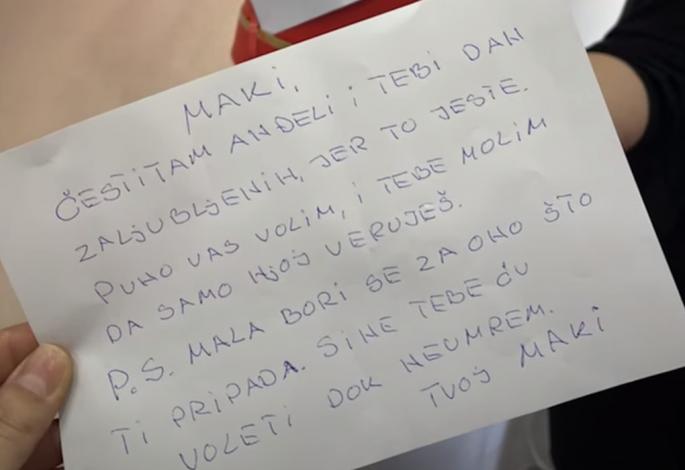 MAKI,
ČESTITAM ANĐELI I TEBI DAN
ZALJUBLJENIH, JER TO JESTE.
PUNO VAS VOLIM, I TEBE MOLIM
DA SAMO NJOJ VERUJEŠ.
P.S. MALA BORI SE ZA ONO ŠTO
TI PRIPADA. SINE TEBE ĆU
VOLETI DOK NEUMREM.
TVOJ MAKI